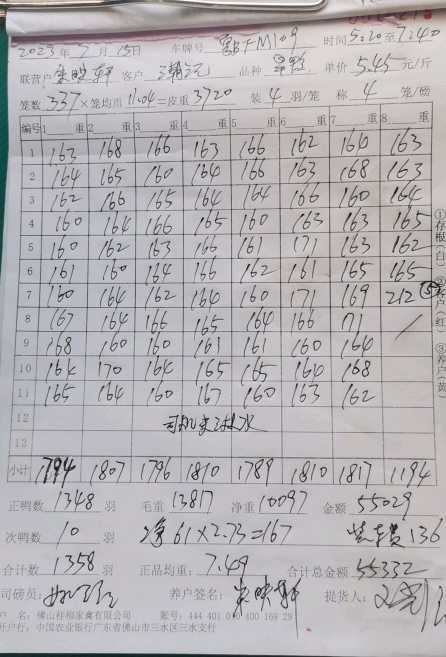 2023年7月15日 车牌号 FM109 时间5:20至7:40
联营户 朱映轩 客户 品种 单价5.45元/斤
笼数337×笼均重11.04=皮重3720 装4羽/笼 称4笼/磅
编号 1 重 2 重 3 重 4 重 5 重 6 重 7 重 8 重
1 163 168 166 163 166 162 164 163
2 164 165 160 164 166 163 168 163
3 162 166 165 164 164 166 160 164
4 160 164 166 165 160 163 163 165
5 160 162 163 166 161 171 163 162
6 161 160 164 166 162 161 165 165
7 160 164 162 164 160 171 169 212 ⑤
8 167 164 166 165 164 166 171 /
9 168 160 160 161 161 160 164
10 164 170 164 165 165 164 168
11 165 164 160 167 160 163 162
12
13
小计 1794 1807 1796 1810 1789 1810 1817 1194
正鸭数1348羽 毛重13817 净重10097 金额55029
次鸭数10羽 净61×2.73=167 装车费136
合计数1358羽 正品均重:7.49 合计总金额55332
司磅员: 养户签名:朱映轩 提货人:
户 名:佛山祥柳家禽有限公司 账号:444 401 010 400 169 29
开户行:中国农业银行广东省佛山市三水区三水支行
①存根(白) ②客户(红) ③养户(黄)